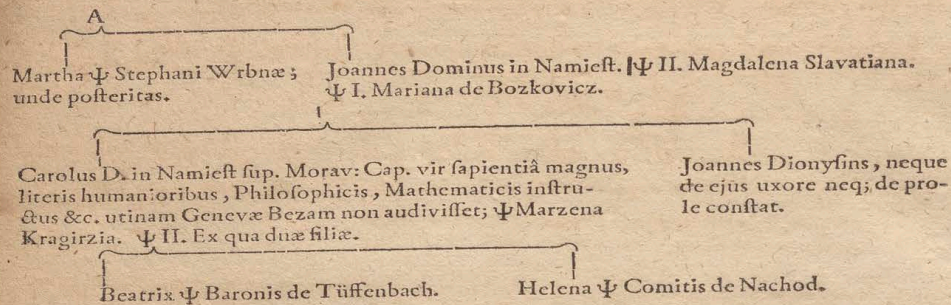 A
Martha Ψ Stephani Wrbnæ;
unde poſteritas.
Joannes Dominus in Namieſt. Ψ II. Magdalena Slavatiana.
Ψ I. Mariana de Bozkovicz.
Carolus D. in Namieſt ſup. Morav: Cap. vir ſapientiâ magnus,
literis humanioribus, Philoſophicis, Mathematicis inſtru-
ctus &c. utinam Genevæ Bezam non audiviſſet; Ψ Marzena
Kragirzia. Ψ II. Ex qua duæ filiæ.
Joannes Dionyſins, neque
de ejus uxore neq; de pro-
le conſtat.
Beatrix Ψ Baronis de Tüffenbach.
Helena Ψ Comitis de Nachod.